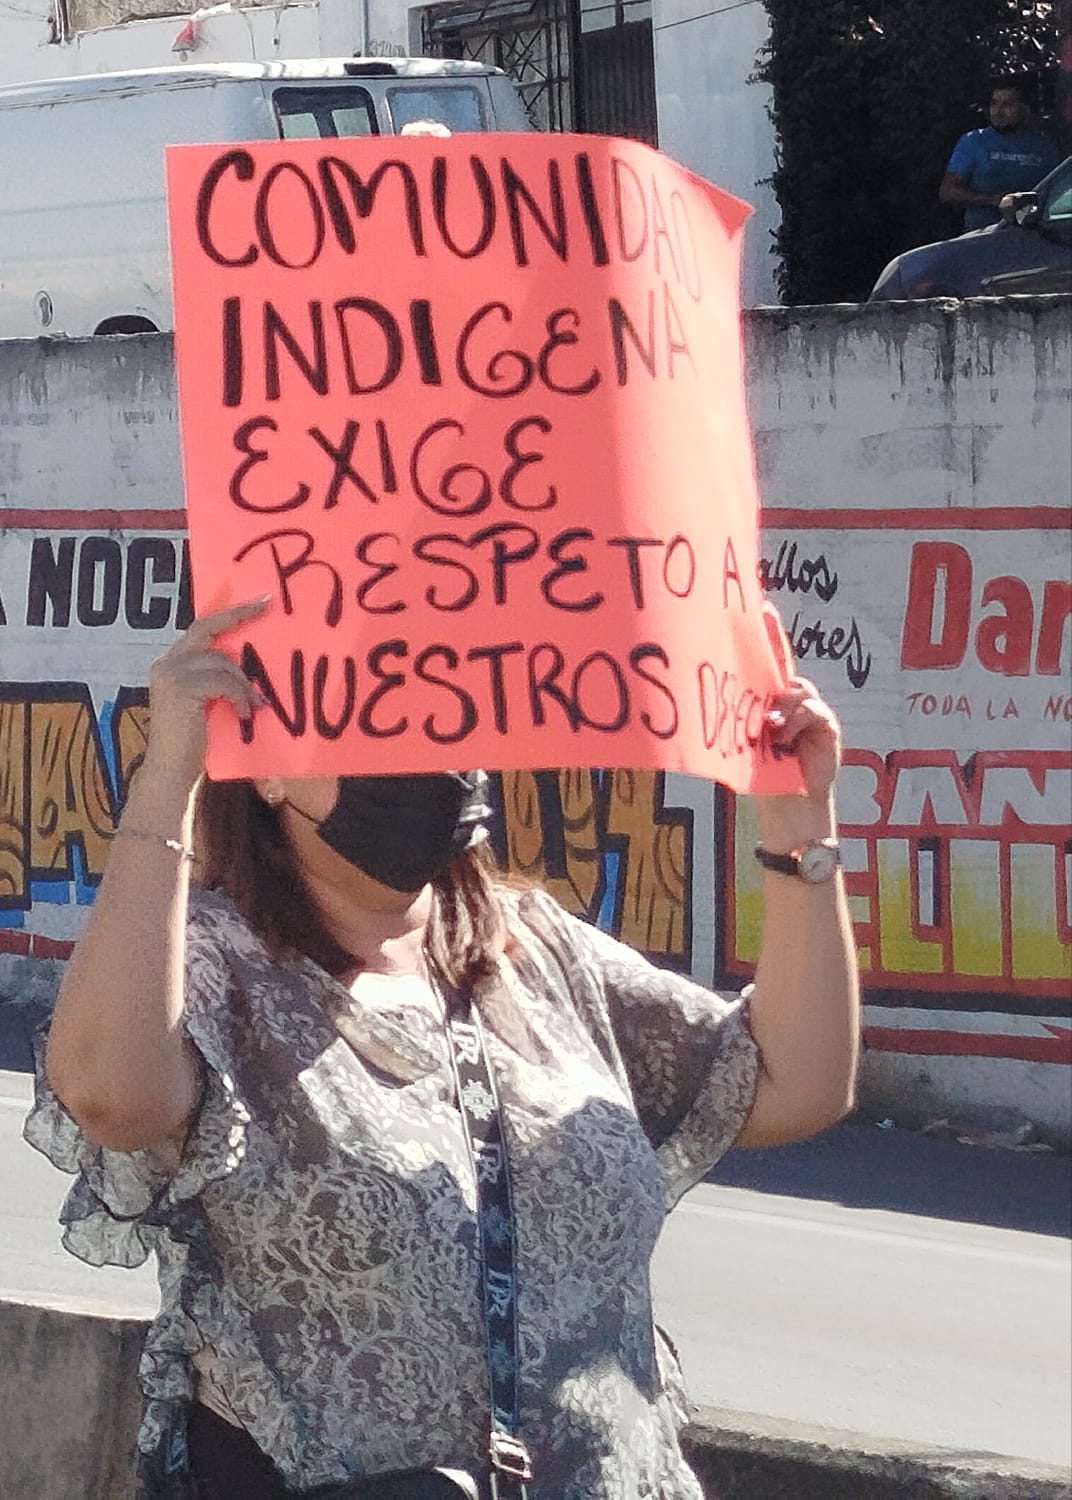 COMUNIDAD
INDIGENA
EXIGE
RESPETO A
NUESTROS
NOC
allos
dores
Dar
TODA LA NO
BAN